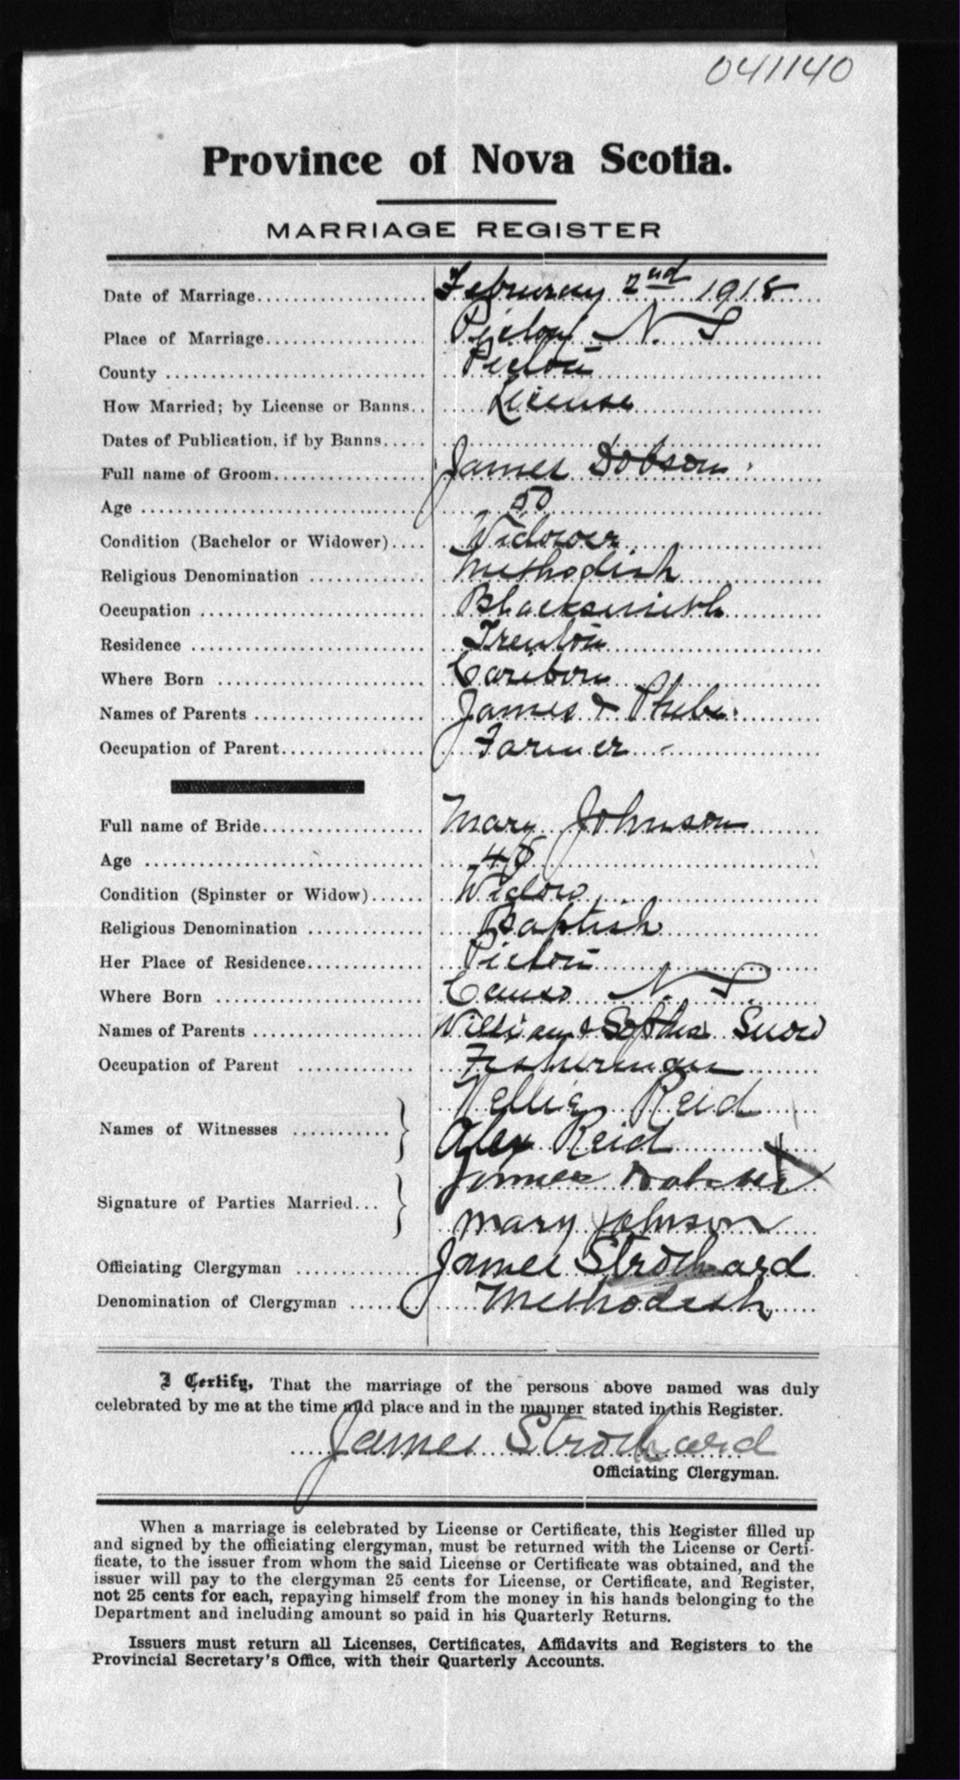 041140
Province of Nova Scotia.
MARRIAGE REGISTER
Date of Marriage.................... February 2nd 1918
Place of Marriage................... Pictou N. S
County ............................. Pictou
How Married; by License or Banns.. License
Dates of Publication, if by Banns.....
Full name of Groom.................. James Dobson
Age ................................ 50
Condition (Bachelor or Widower).... Widower
Religious Denomination ............ Methodist
Occupation ......................... Blacksmith
Residence .......................... Trenton
Where Born ......................... Caribou
Names of Parents ................... James & Phebe
Occupation of Parent................ Farmer
Full name of Bride.................. Mary Johnson
Age ................................
Condition (Spinster or Widow)...... Widow
Religious Denomination ............ Baptist
Her Place of Residence............. Pictou
Where Born ......................... Canso N. S.
Names of Parents ................... William & Sophia Snow
Occupation of Parent ............. Fisherman
Nellie Reid
Names of Witnesses ........... } Alex Reid
James
Signature of Parties Married... } Mary Johnson
Officiating Clergyman .............. James Strothard
Denomination of Clergyman ........ Methodist
I Certify, That the marriage of the persons above named was duly
celebrated by me at the time and place and in the manner stated in this Register.
James Strothard
Officiating Clergyman.
When a marriage is celebrated by License or Certificate, this Register filled up
and signed by the officiating clergyman, must be returned with the License or Certi-
ficate, to the issuer from whom the said License or Certificate was obtained, and the
issuer will pay to the clergyman 25 cents for License, or Certificate, and Register,
not 25 cents for each, repaying himself from the money in his hands belonging to the
Department and including amount so paid in his Quarterly Returns.
Issuers must return all Licenses, Certificates, Affidavits and Registers to the
Provincial Secretary's Office, with their Quarterly Accounts.